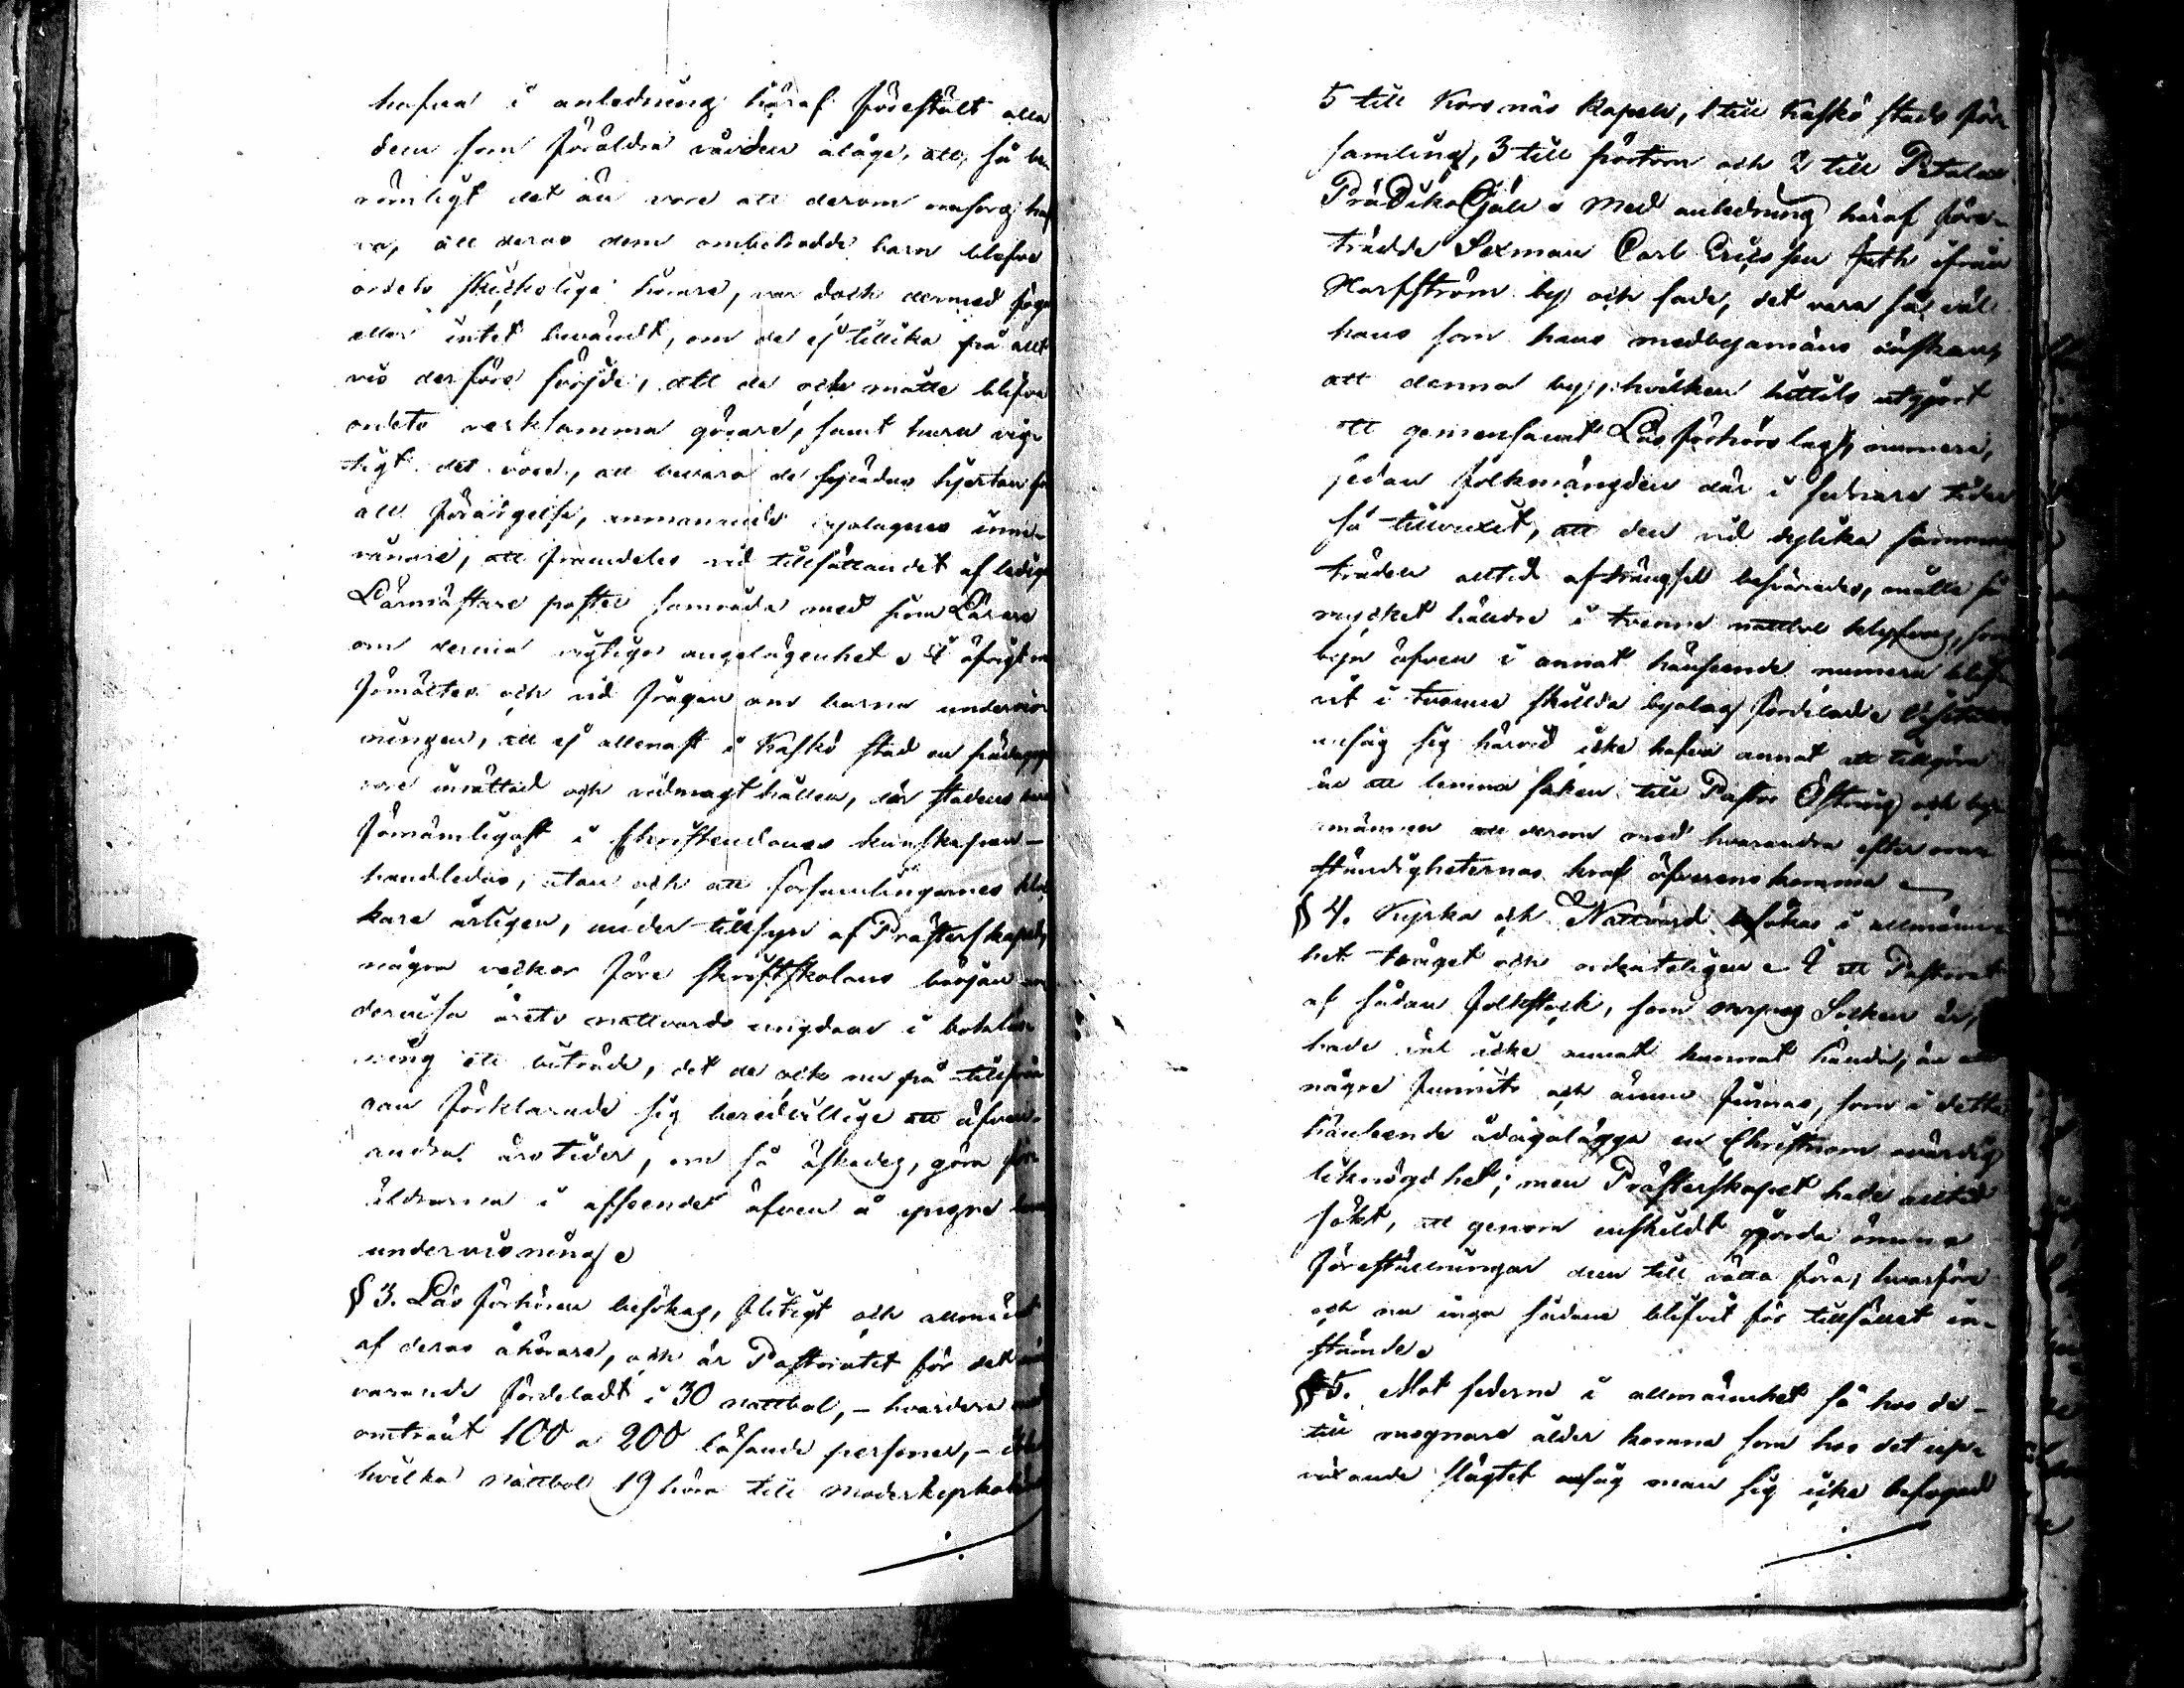 hafva i anledning häraf förestält alla
dem som föräldra vården ålåge, att, så be-
römligt det än vore att derom omsorg haf
va, att deras dem ombetrodde barn blefve
ordets skickelige hörare, var doch dermed föga
eller intet bevändt, om de ej tillika på allt
vis derföre sörjde, att de och måtte blifva
ordets verksamma görare, samt huru vig-
tigt det vore, att bevara de spädas hjertan för
all förargelse, anmanande byalagens inne-
vånare, att framdeles vid tillsättandet af ledige
Läromästare poster samråda med sine Lärare
om denna vigtiga angelägenhet. I öfrigt
förmältes och vid frågan om barna undervis-
ningen, att ej allenast i Kaskö stad en pædagogi
vore inrättad och vidmagthållen, där stadens barn
förnämligast i Christendoms kunskapen
handledas, utan och att församlingarnes kloc-
kare årligen, under tillsyn af Prästerskapet,
några veckor före skriftskolans början un-
dervisa årets nattvards ungdom i bokläs-
ning att biträda, det de och nu på tillfrå-
gan förklarade sig beredvillige att äfven
andra årstider, om så äskades, göra för-
äldrarna i afseende äfven å yngre barns
undervisning.
§ 3. Läsförhören besökas, flitigt och allmänt
af deras åhörare, och är Pastoratet för det när
varande fördeladt i 30 nattbol, - hvardera med
omkränt 100 a 200 läsande personer, - af
hvilka nattbol 19 höra till moderkyrkan
5 till Korsnäs Kapell, 1 till Kaskö stads för
samling, 3 till Pörtom och 2 till Petalax
Prädiko Gäll. Med anledning häraf före-
trädde Sexman Carl Ericsson Juth ifrån
Harfström by och sade, det vara så väl
hans som hans medbyamäns önskan,
att denna by, hvilken hittils utgjort
ett gemensamt Läsförhörs lag, numera,
sedan folkmängden där i sednare tider
så tillvuxit, att den vid dylika samman
träden alltid af trängsel besvärades, måtte så
mycket hälldre i tvenne nattbol klyfvas, som
byn äfven i annat hänseende numera blif-
vit i tvenne skillda byalag fördelad.
ansåg sig härvid icke hafva annat att tillgöra
än att lemna saken till Pastor Östring och bya
männen att derom med hvarandra efter om-
ständigheternas kraf öfverenskomma.
§ 4. Kyrka och Nattvard besökas i allmän-
het träget och ordenteligen. I ett Pastorat
af sådan folkstock, som Nerpes Socken är,
hade väl icke annat kunnat hända, än att
några funnits och ännu finnas, som i detta
hänseende ådagalägga en Christnom ovärdig
liknögdhet; men Prästerskapet hade alltid
sökt, att genom enskildt gjorda ömma
föreställningar dem till rätta föra, hvarföre
och nu inga sådane blifvit för tillfället in-
stämde.
§ 5. Mot sederne i allmänhet så hos de
till mognare ålder komna som hos det upp-
växande slägtet ansåg man sig icke befogad